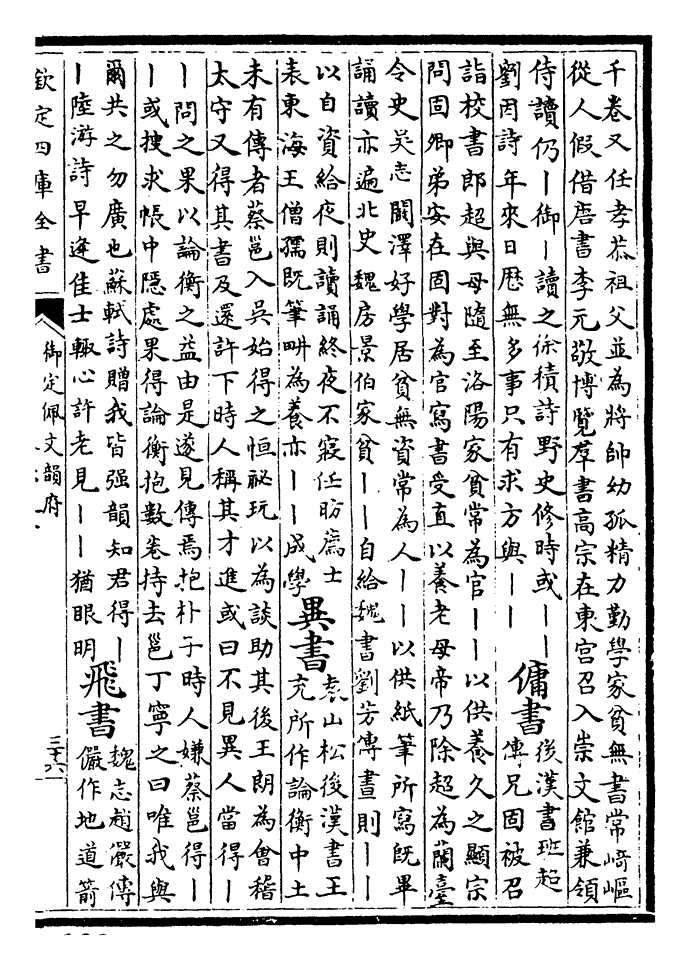 千卷又任孝恭祖父並為將帥幼孤精力勤學家貧無書常崎嶇
從人假借唐書李元敬博覽羣書高宗在東宫召入崇文館兼領
侍讀仍丨御丨讀之徐積詩野史修時或丨丨
劉因詩年來日歴無多事只有求方與丨丨
傭書
後漢書班超
傳兄固被召
詣校書郎超與母隨至洛陽家貧常為官丨丨以供養久之顯宗
問固卿弟安在固對為官寫書受直以養老母帝乃除超為蘭臺
令史吳志闞澤好學居貧無資常為人丨丨以供紙筆所寫既畢
誦讀亦遍北史魏房景伯家貧丨丨自給魏書劉芳傳晝則丨丨
以自資給夜則讀誦終夜不寢任昉薦士
表東海王僧孺既筆畊為養亦丨丨成學
異書
袁山松後漢書王
充所作論衡中土
未有傳者蔡邕入吳始得之恒祕玩以為談助其後王朗為會稽
太守又得其書及還許下時人稱其才進或曰不見異人當得丨
丨問之果以論衡之益由是遂見傳焉抱朴子時人嫌蔡邕得丨
丨或搜求帳中隱處果得論衡抱數卷持去邕丁寧之曰唯我與
爾共之勿廣也蘇軾詩贈我皆强韻知君得丨
丨陸游詩早逢佳士輙心許老見丨丨猶眼明
飛書
魏志趙儼傳
儼作地道箭
欽定四庫全書
御定佩文韻府